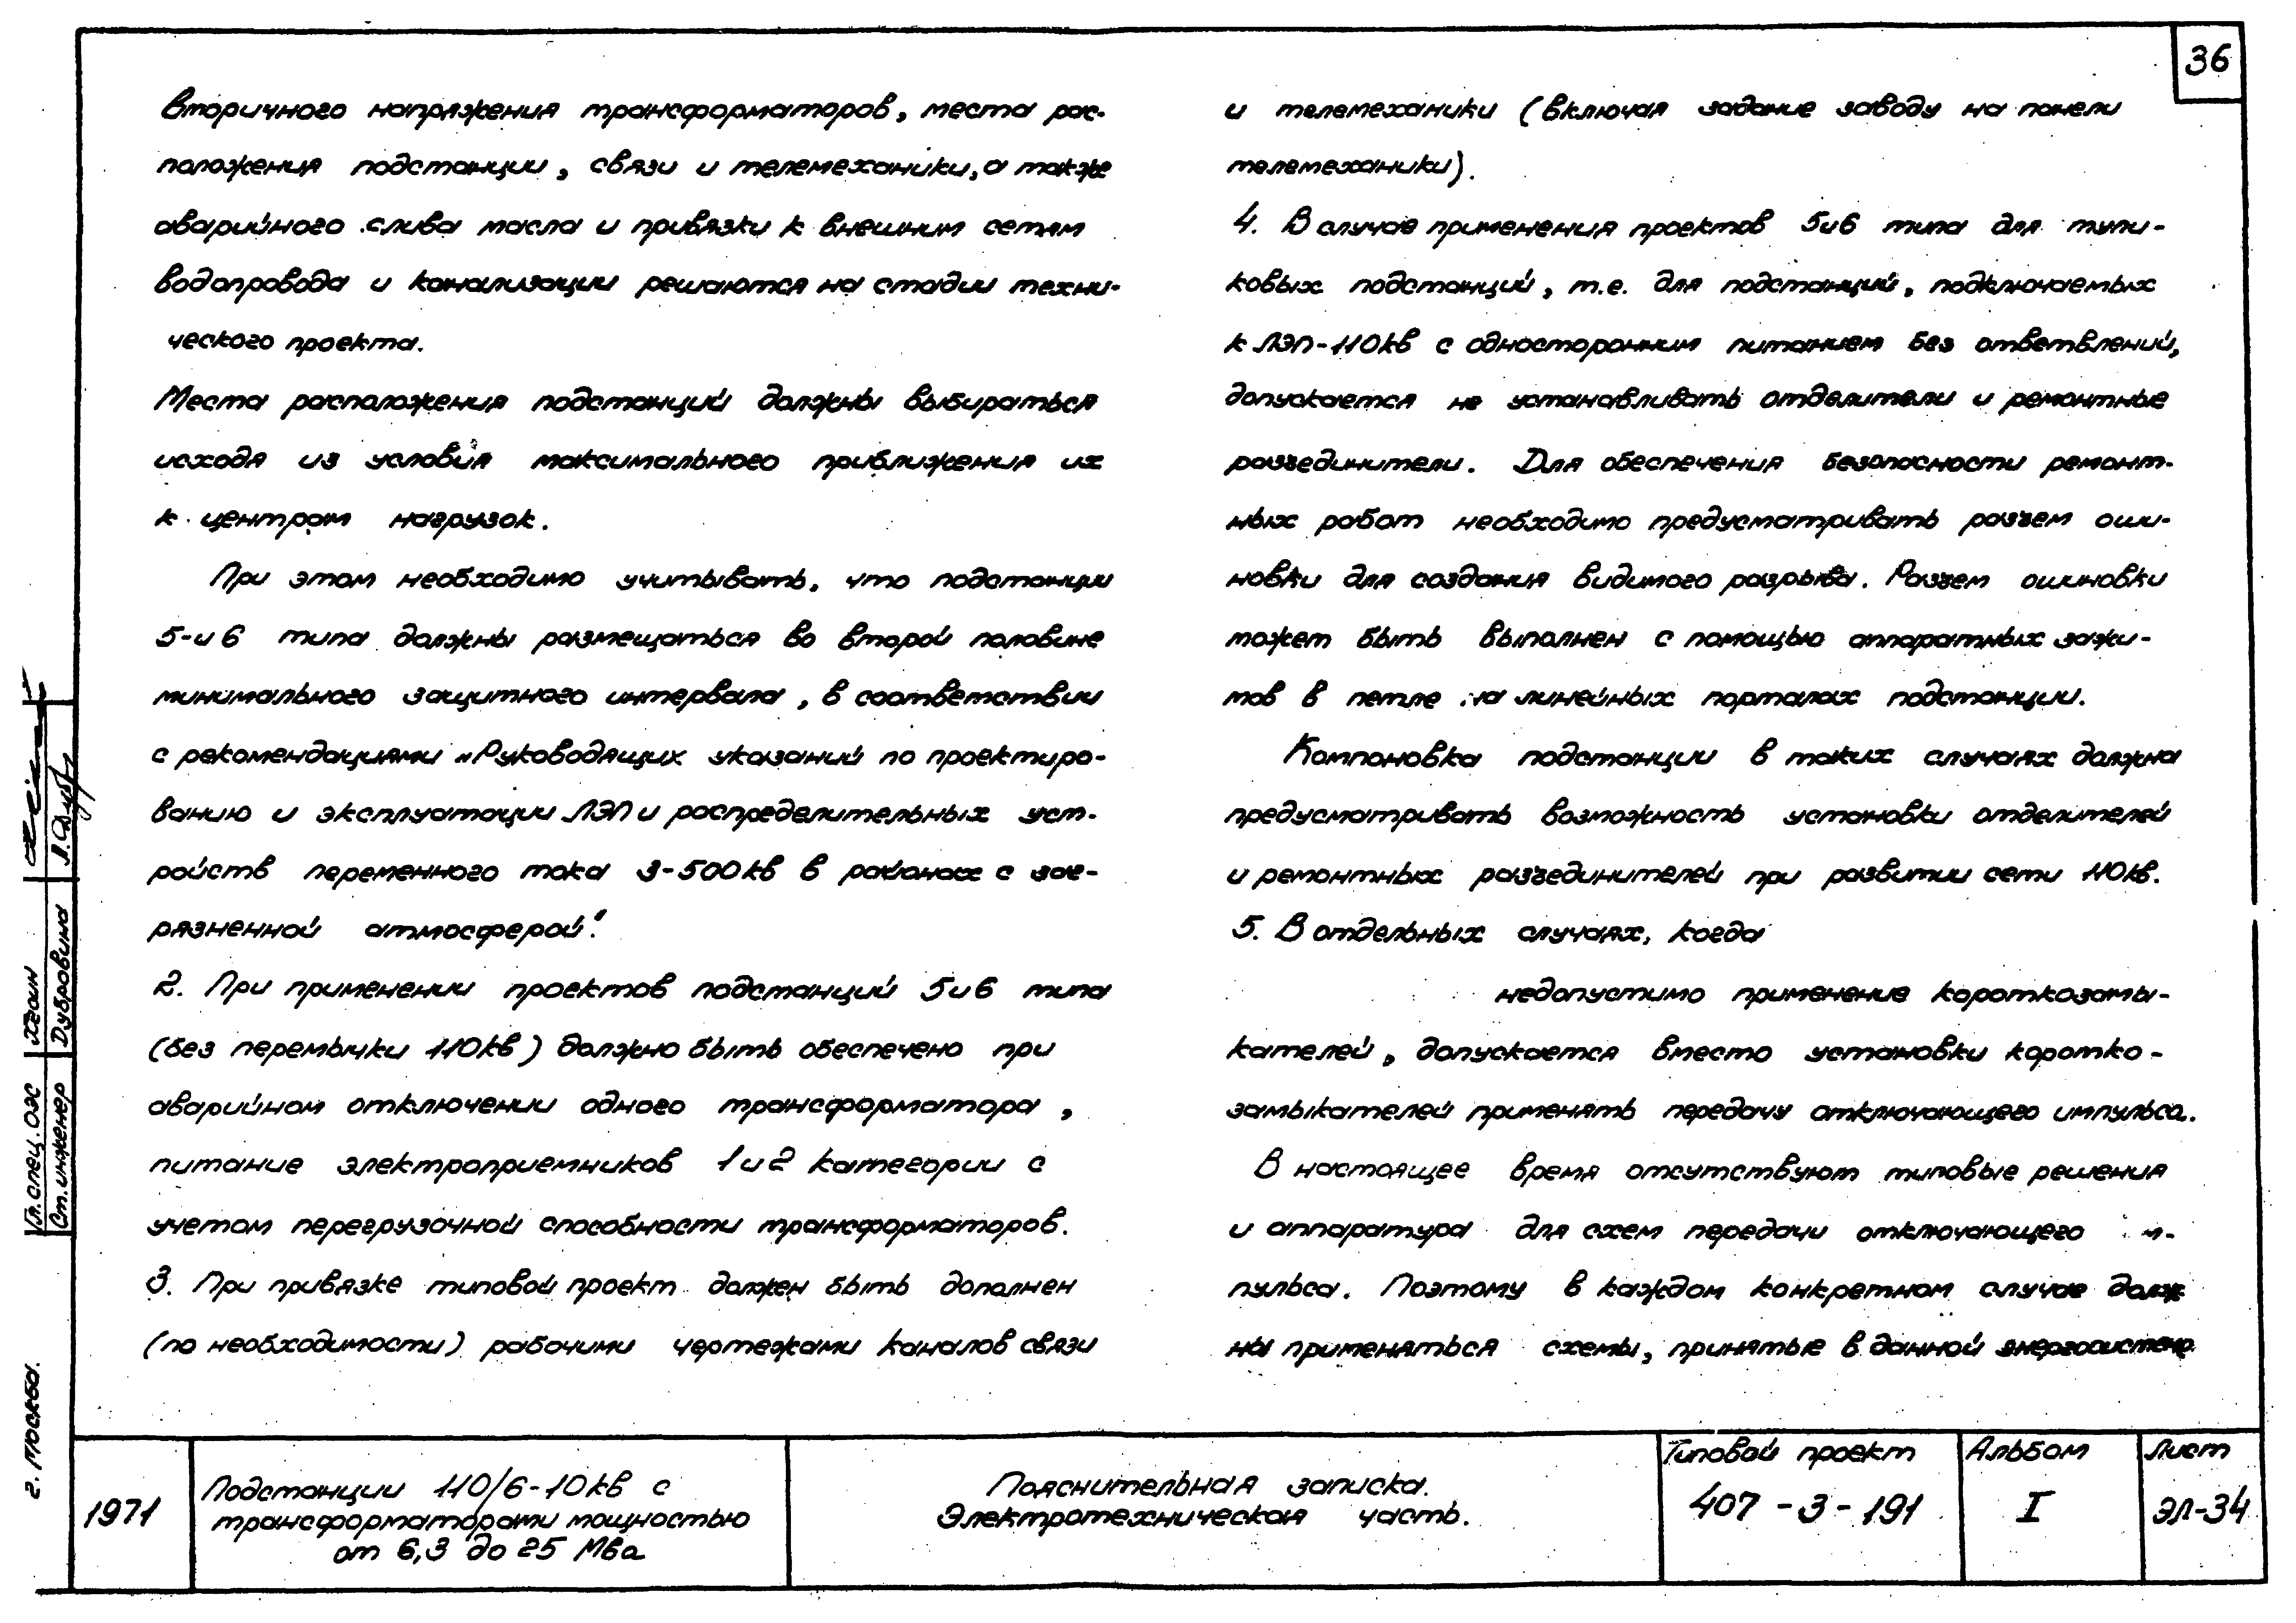 36
вторичного напряжения трансформаторов, места рас-
положения подстанции, связи и телемеханики, а также
аварийного слива масла и привязки к внешним сетям
водопровода и канализации решаются на стадии техни-
ческого проекта.
Места расположения подстанций должны выбираться
исходя из условия максимального приближения их
к центрам нагрузок.
При этом необходимо учитывать, что подстанции
5-и 6 типа должны размещаться во второй половине
минимального защитного интервала, в соответствии
с рекомендациями „Руководящих указаний по проектиро-
ванию и эксплуатации ЛЭП и распределительных уст-
ройств переменного тока 3-500кв в районах с заг-
рязненной атмосферой".
2. При применении проектов подстанций 5и6 типа
(без перемычки 110кв) должно быть обеспечено при
аварийном отключении одного трансформатора,
питание электроприемников 1и2 категории с
учетом перегрузочной способности трансформаторов.
3. При привязке типовой проект должен быть дополнен
(по необходимости) рабочими чертежами каналов связи
и телемеханики (включая задание заводу на панели
телемеханики).
4. В случае применения проектов 5и6 типа для тупи-
ковых подстанций, т.е. для подстанций, подключаемых
к ЛЭП-110кв с односторонним питанием без ответвлений,
допускается не устанавливать отделители и ремонтные
разъединители. Для обеспечения безопасности ремонт-
ных работ необходимо предусматривать разъем оши-
новки для создания видимого разрыва. Разъем ошиновки
может быть выполнен с помощью аппаратных зажи-
мов в петле на линейных порталах подстанции.
Компоновка подстанции в таких случаях должна
предусматривать возможность установки отделителей
и ремонтных разъединителей при развитии сети 110кв.
5. В отдельных случаях, когда
недопустимо применение короткозамы-
кателей, допускается вместо установки коротко-
замыкателей применять передачу отключающего импульса.
В настоящее время отсутствуют типовые решения
и аппаратура для схем передачи отключающего м-
пульса. Поэтому в каждом конкретном случае долж
ны применяться схемы, принятые в данной энергосистеме
Гл. спец. ОЭС Хгоин
Ст. инженер Дубровина Л. Дуб
г. Москва.
1971
Подстанции 110/6-10кв с
трансформаторами мощностью
от 6,3 до 25 Мва
Пояснительная записка.
Электротехническая часть.
Типовой проект
407-3-191
Альбом
I
Лист
ЭЛ-34